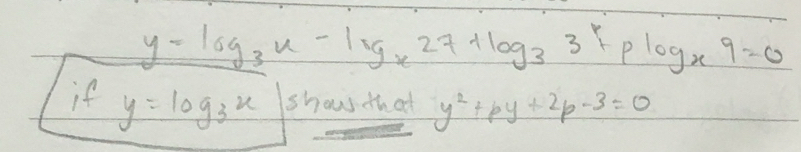 y = log₃ x - logₓ 27 + log₃ 3ᵖ + p logₓ 9 = 0
if y = log₃ x show that y² + py + 2p - 3 = 0